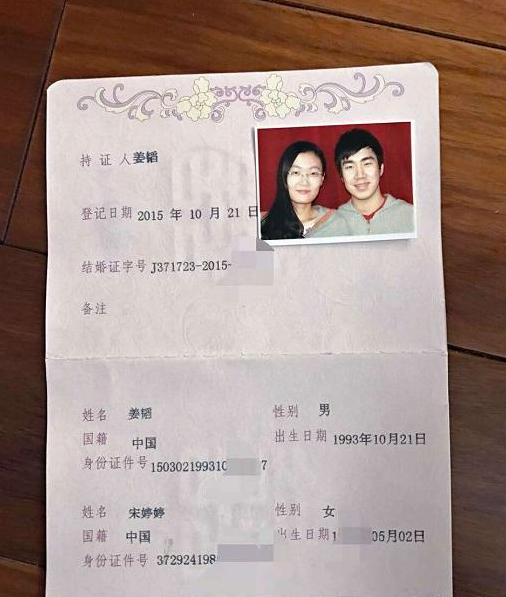 持 证 人 姜韬
登记日期 2015 年 10 月 21 日
结婚证字号 J371723-2015-
备注
姓名 姜韬 性别 男
国籍 中国 出生日期 1993年10月21日
身份证件号 15030219931 7
姓名 宋婷婷 性别 女
国籍 中国 出生日期 1 05月02日
身份证件号 372924198